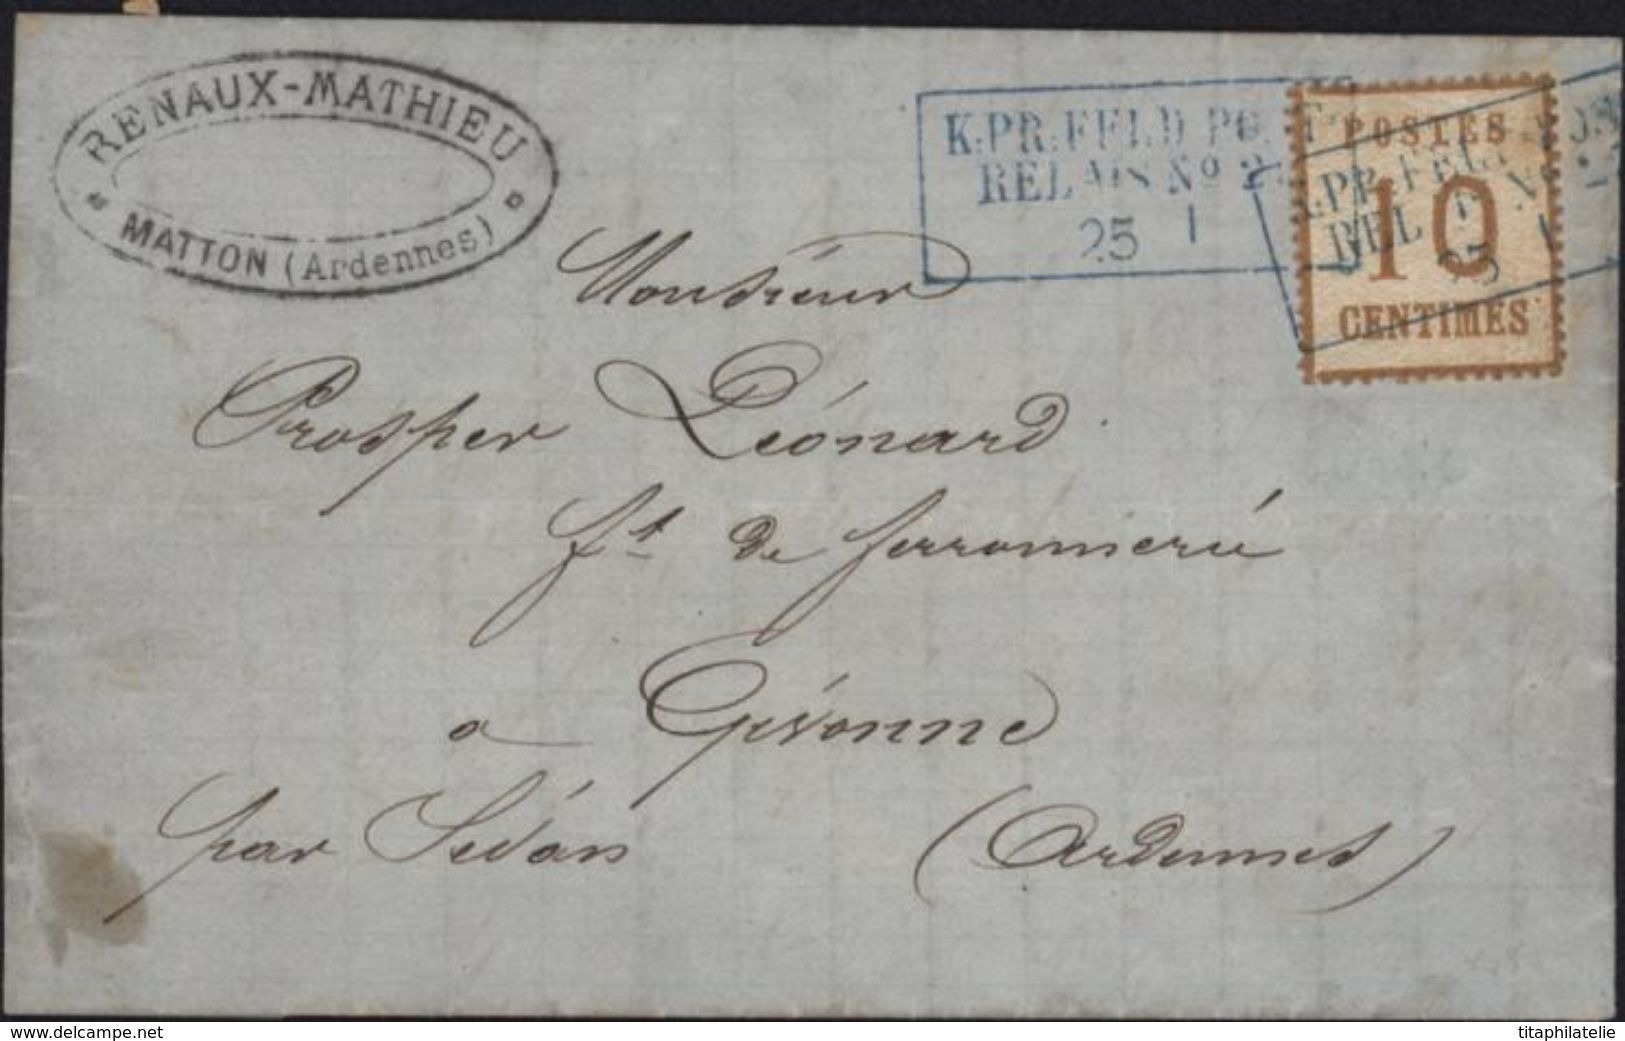 RENAUX-MATHIEU
MATTON (Ardennes)
K:PR:FELD POST
RELAIS No 2
25 1
POSTES
10
CENTIMES
K:PR:FELD POST
RELAIS No
25 1
Monsieur
Prosper Léonard
ft de ferronnerie
a Givonne
par Sédan (Ardennes)
www.delcampe.net
titaphilatelie